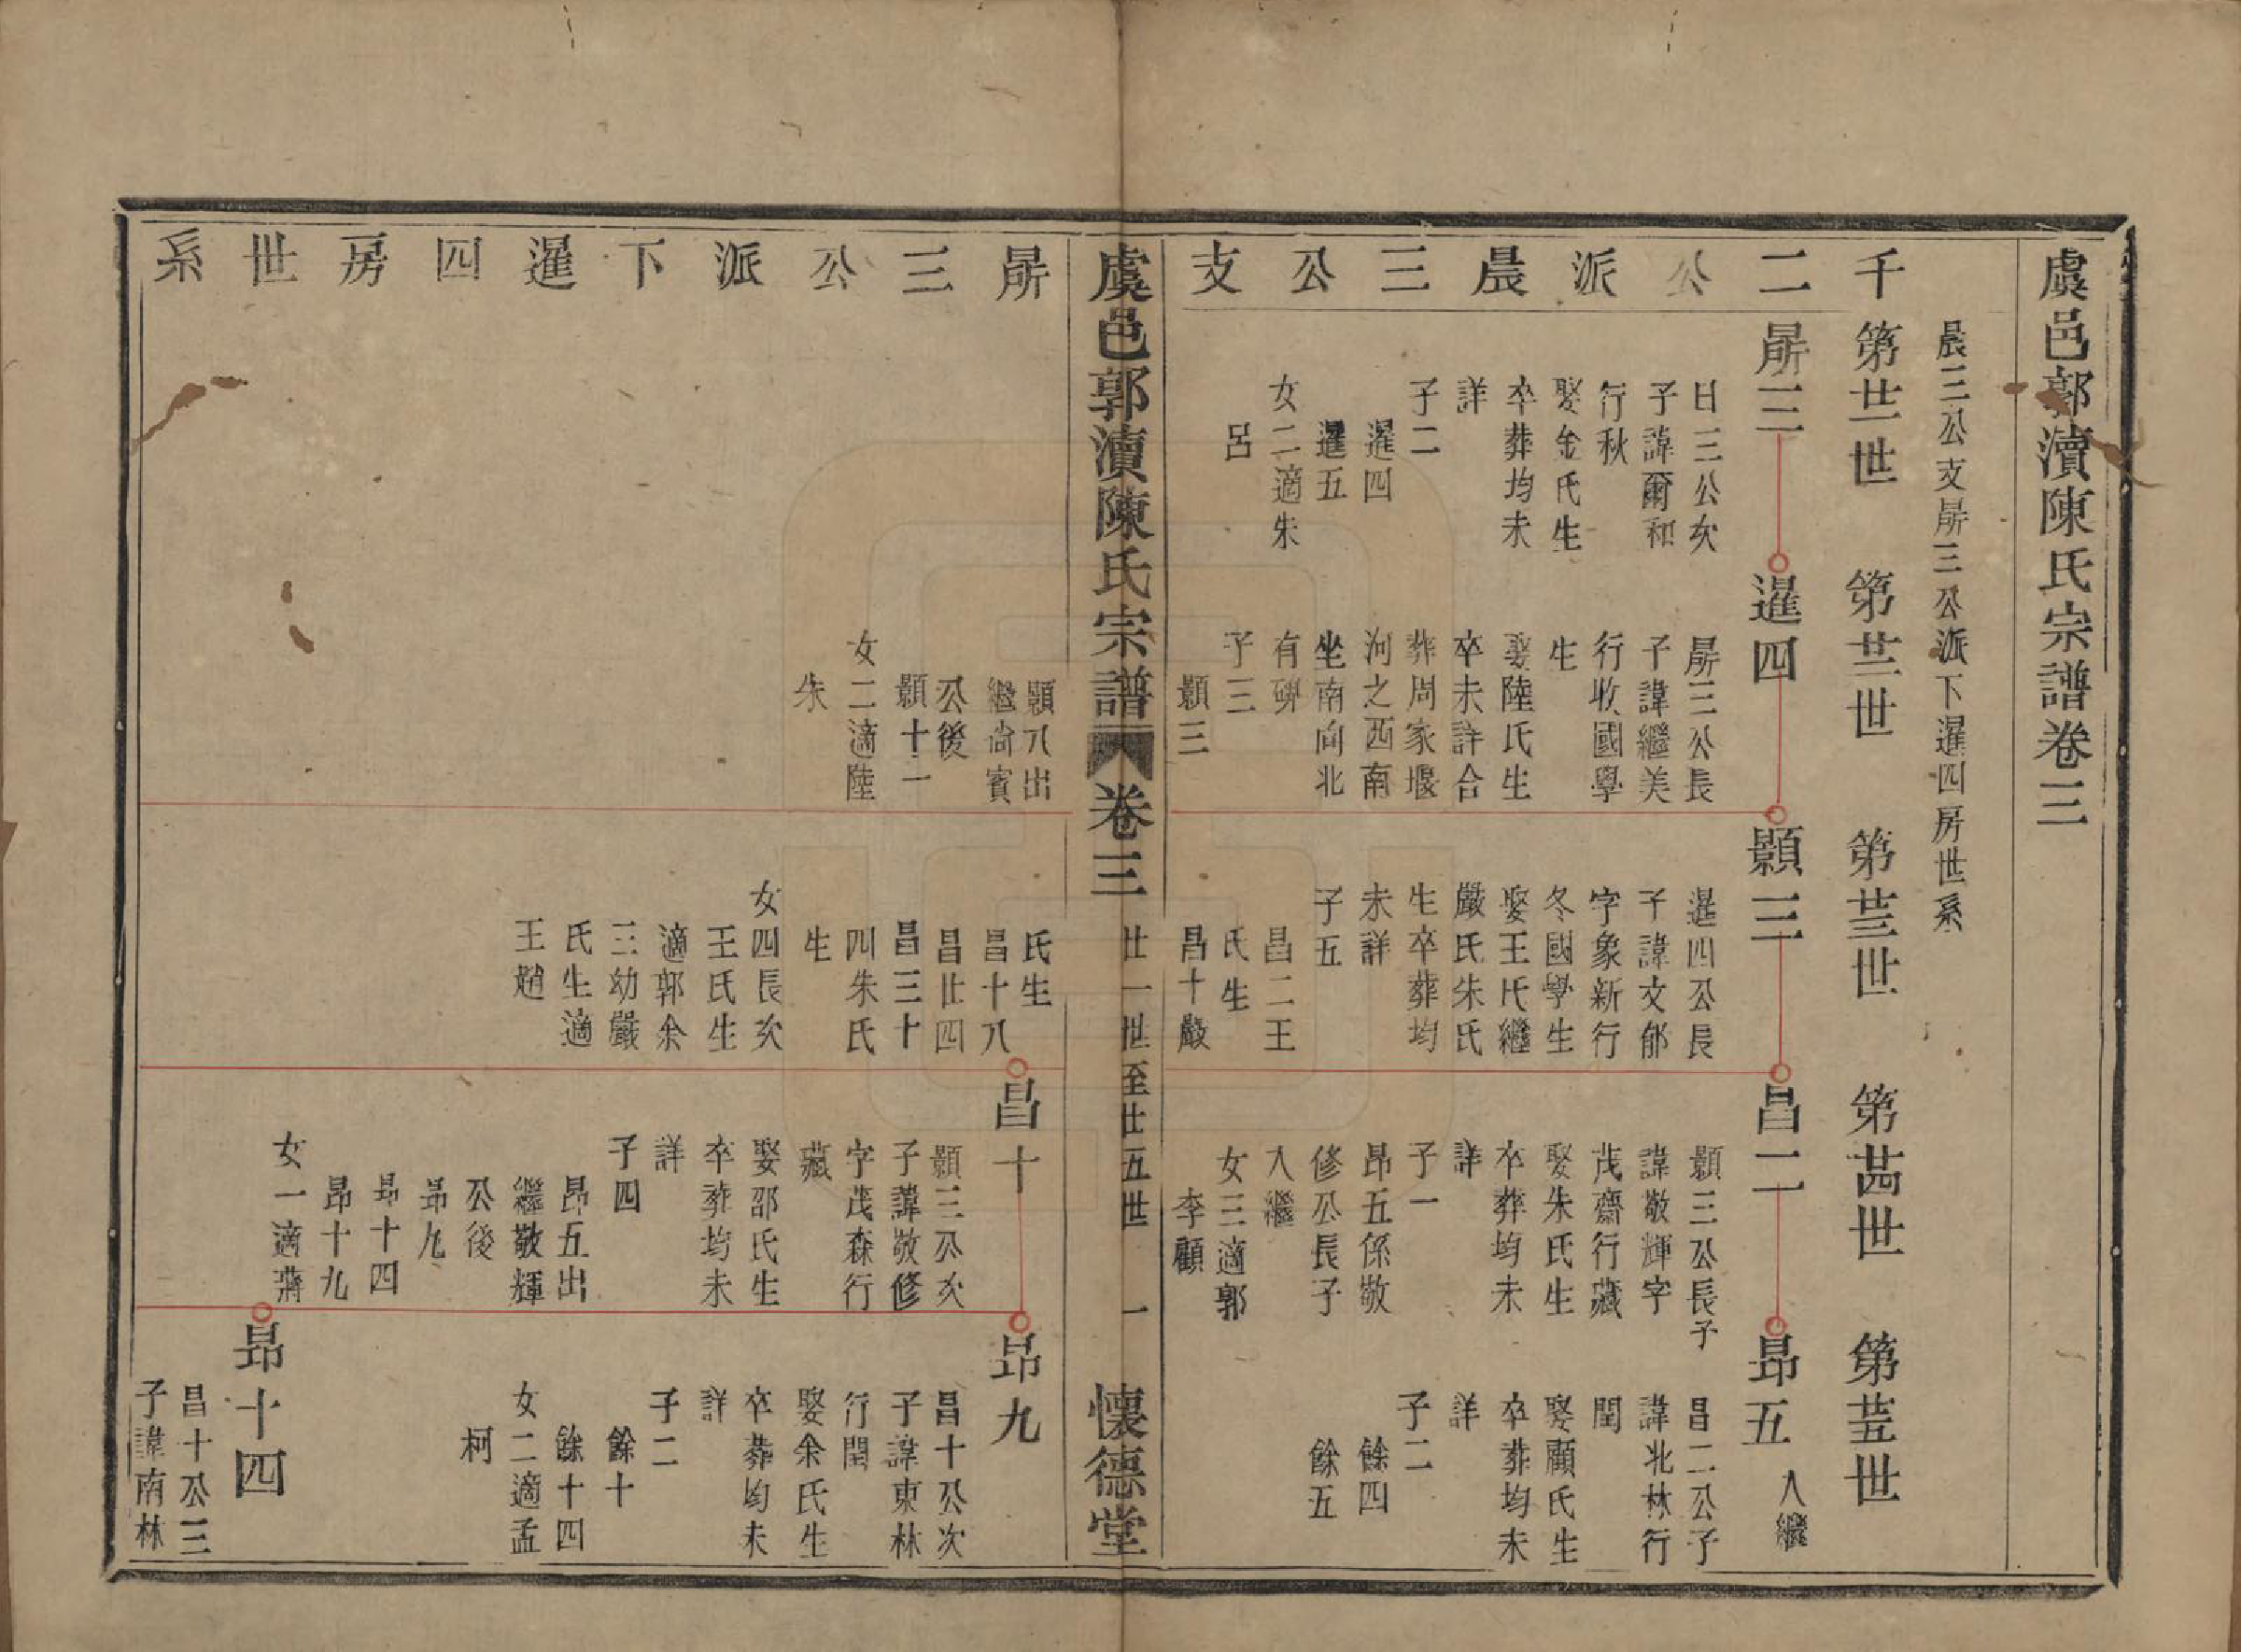 虞邑郭瀆陳氏宗譜卷三
晨三公支昕三公派下暹四房世系
千二公派晨三公支
第廿一世
第廿二世
第廿三世
第廿四世
第廿五世
三
日三公次
子諱爾和
行秋
娶金氏生
卒葬均未
詳
子二
暹四
暹五
女二適朱
呂
暹四
三公長
子諱繼美
行收國學
生
娶陸氏生
卒未詳合
葬周家堰
河之西南
坐南向北
有碑
子三
顥三
顥八出
繼尚賓
公後
顥十一
女二適陸
朱
顥三
暹四公長
子諱文郁
字象新行
冬國學生
娶王氏繼
嚴氏朱氏
生卒葬均
未詳
子五
昌二王
氏生
昌十嚴
氏生
昌十八
昌廿四
昌三十
四朱氏
生
女四長次
王氏生
適郭余
三幼嚴
氏生適
王趙
昌二
顥三公長子
諱敬輝字
茂齋行藏
娶朱氏生
卒葬均未
詳
子一
昂五係敬
修公長子
入繼
女三適郭
李顧
昌十
顥三公次
子諱敬修
字茂森行
藏
娶邵氏生
卒葬均未
詳
子四
昂五出
繼敬輝
公後
昂九
昂十四
昂十九
女一適蔣
昂五 入繼
昌二公子
諱北林行
閏
娶顧氏生
卒葬均未
詳
子二
餘四
餘五
昂九
昌十公次
子諱東林
行閏
娶余氏生
卒葬均未
詳
子二
餘十
餘十四
女二適孟
柯
昂十四
昌十公三
子諱南林
虞邑郭瀆陳氏宗譜 卷三 廿一世至廿五世 一 懷德堂
三公派下暹四房世系